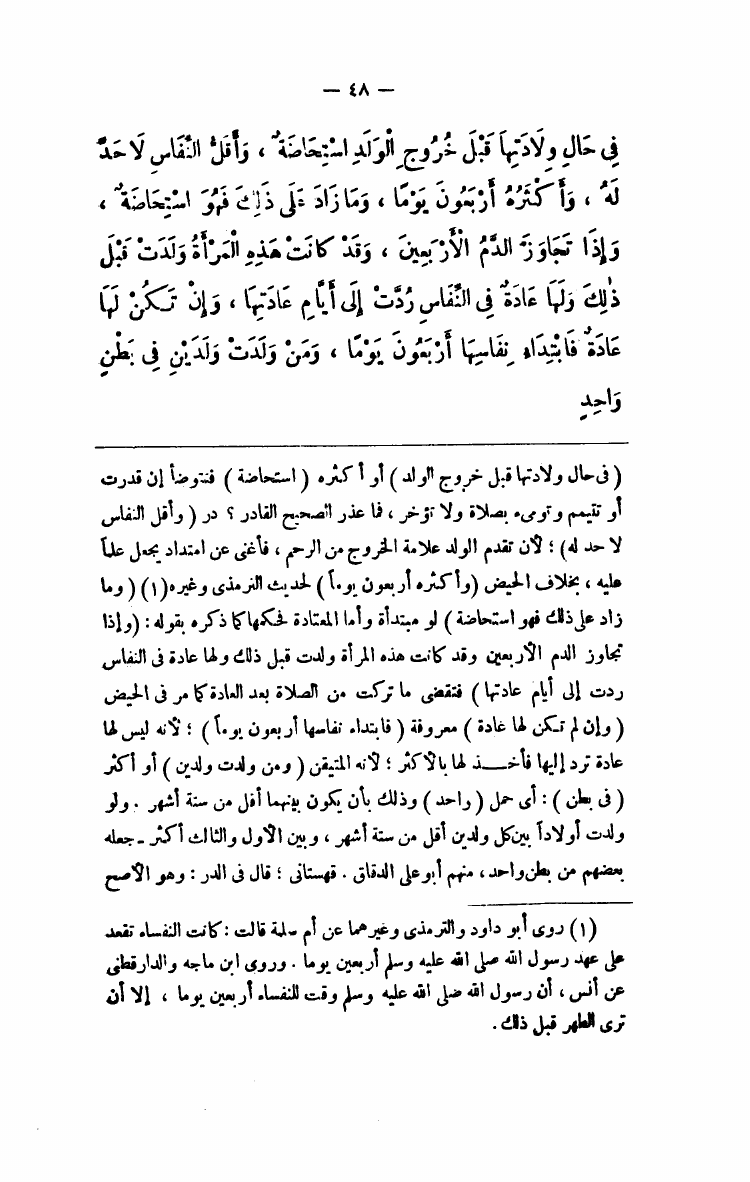 — ٤٨ —
فِي حَالِ وِلَادَتِهَا قَبْلَ خُرُوجِ الْوَلَدِ اسْتِحَاضَةٌ ، وَأَقَلُّ النِّفَاسِ لَا حَدَّ
لَهُ ، وَأَكْثَرُهُ أَرْبَعُونَ يَوْمًا ، وَمَا زَادَ عَلَى ذَلِكَ فَهُوَ اسْتِحَاضَةٌ ،
وَإِذَا تَجَاوَزَ الدَّمُ الْأَرْبَعِينَ ، وَقَدْ كَانَتْ هَذِهِ الْمَرْأَةُ وَلَدَتْ قَبْلَ
ذٰلِكَ وَلَهَا عَادَةٌ فِي النِّفَاسِ رُدَّتْ إِلَى أَيَّامِ عَادَتِهَا ، وَإِنْ تَكُنْ لَهَا
عَادَةٌ فَابْتِدَاءُ نِفَاسِهَا أَرْبَعُونَ يَوْمًا ، وَمَنْ وَلَدَتْ وَلَدَيْنِ فِي بَطْنٍ
وَاحِدٍ
( فى حال ولادتها قبل خروج الولد ) أو أكثره ( استحاضة ) فتتوضأ إن قدرت
أو تتيمم وتومىء بصلاة ولا تؤخر ، فما عذر الصحيح القادر ؟ در ( وأقل النفاس
لا حد له) ؛ لأن تقدم الولد علامة الخروج من الرحم ، فأغنى عن امتداد يجعل علماً
عليه ، بخلاف الحيض (وأكثره أربعون يوماً ) لحديث الترمذى وغيره(١) ( وما
زاد على ذلك فهو استحاضة ) لو مبتدأة وأما المعتادة فحكمها كما ذكره بقوله : (وإذا
تجاوز الدم الأربعين وقد كانت هذه المرأة ولدت قبل ذلك ولها عادة فى النفاس
ردت إلى أيام عادتها ) فتقضى ما تركت من الصلاة بعد العادة كما مر فى الحيض
( وإن لم تكن لها عادة ) معروفة ( فابتداء نفاسها أربعون يوماً ) ؛ لأنه ليس لها
عادة ترد إليها فأخذ لها بالأكثر ؛ لأنه المتيقن ( ومن ولدت ولدين ) أو أكثر
( فى بطن ) : أى حمل ( واحد ) وذلك بأن يكون بينهما أقل من ستة أشهر . ولو
ولدت أولاداً بين كل ولدين أقل من ستة أشهر ، وبين الأول والثالث أكثر ـ جعله
بعضهم من بطن واحد ، منهم أبو على الدقاق . قهستانى ؛ قال فى الدر : وهو الأصح
(١) روى أبو داود والترمذى وغيرهما عن أم سلمة قالت : كانت النفساء تقعد
على عهد رسول الله صلى الله عليه وسلم أربعين يوما . وروى ابن ماجه والدارقطنى
عن أنس ، أن رسول الله صلى الله عليه وسلم وقت للنفساء أربعين يوما ، إلا أن
ترى الطهر قبل ذلك .